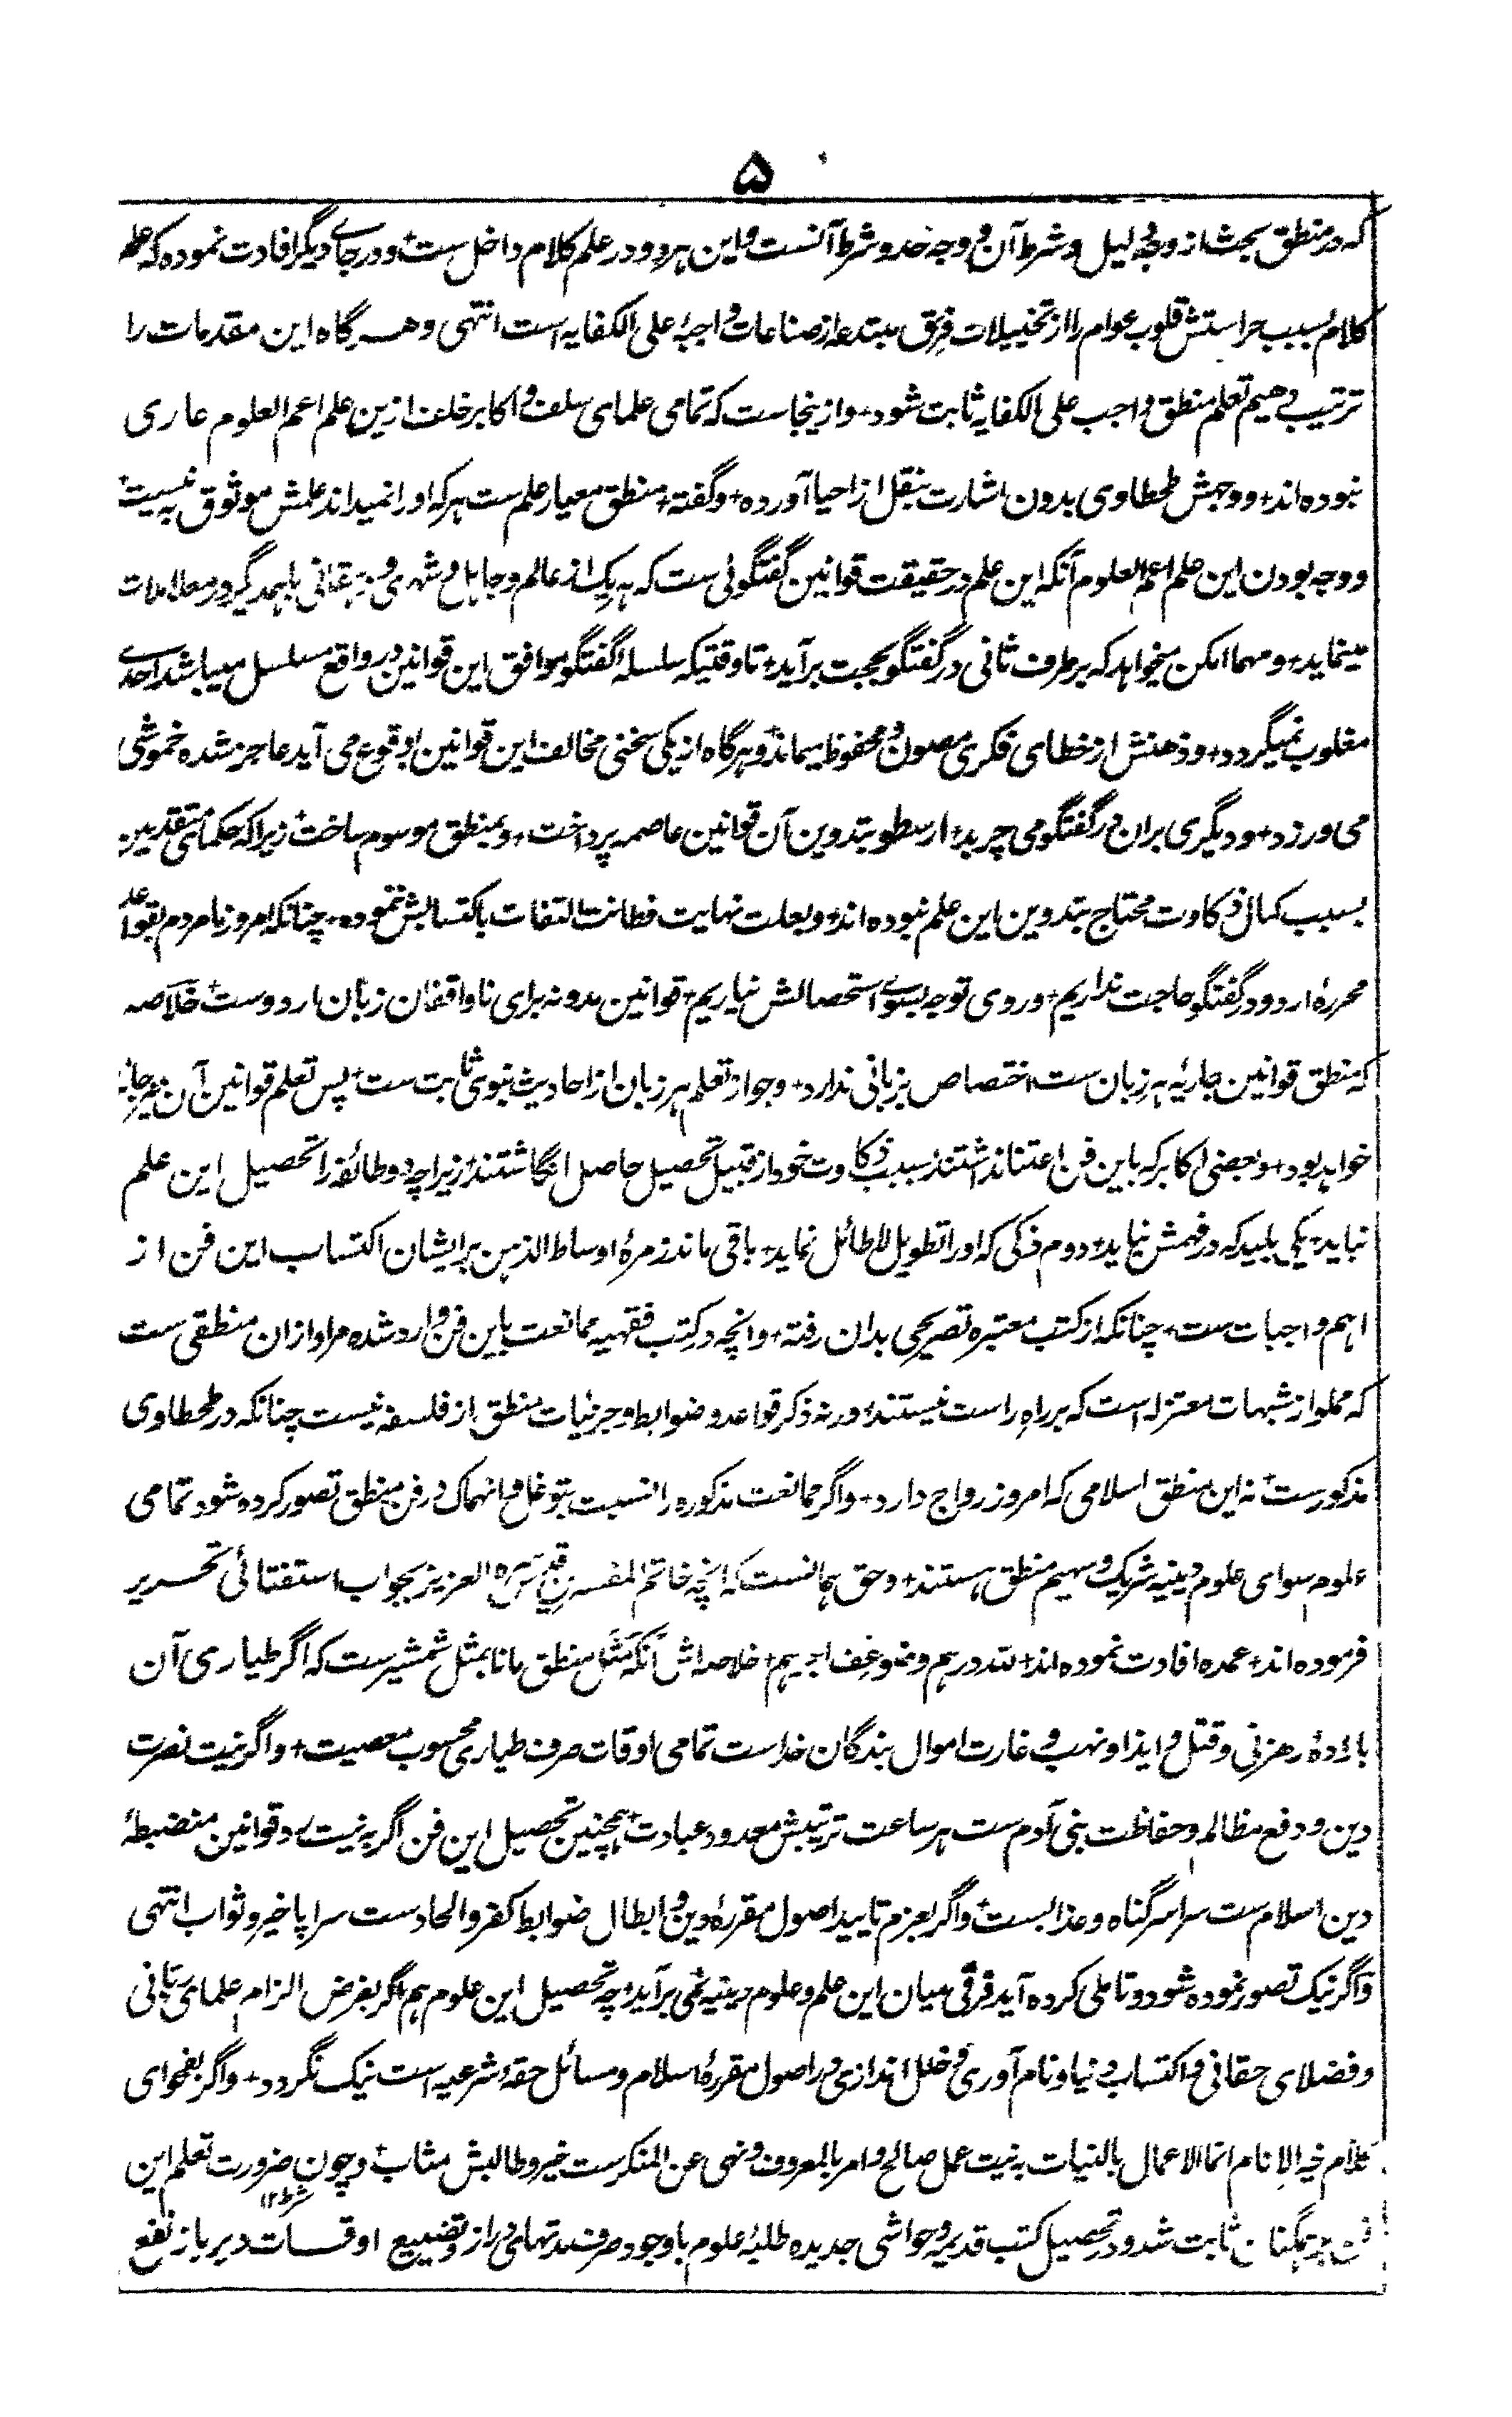 ۵
که در منطق بحث از وجه دلیل و شرط آن و وجه حد و شرط آنست و این هر دو در علم کلام داخل ست + و در جاے دیگر افادت نموده که علم
کلام بسبب حراستش قلوب عوام را از تخییلات فرق مبتدعه از صناعات واجبهٔ علی الکفایه است انتهی و هر گاه این مقدمات را
ترتیب دهیم تعلم منطق واجب علی الکفایه ثابت شود + و ازینجاست که تمامی علمای سلف و اکابر خلف ازین علم اعم العلوم عاری
نبوده اند + و وجهش طحطاوی بدون اشارت بنقل از احیا آورده + و گفته + منطق معیار علم ست هر که او را نمیداند علمش موثوق به نیست +
و وجه بودن این علم اعم العلوم آنکه این علم در حقیقت قوانین گفتگوئی ست که هر یک از عالم و جاهل و شهری و دهقانی با همدگر در معاملات
مینماید + و مهما امکن میخواهد که بر طرف ثانی در گفتگو بحجت برآید + تا وقتیکه سلسلهٔ گفتگو موافق این قوانین در واقع مسلسل میباشد احدے
مغلوب نمیگردد + و ذهنش از خطای فکری مصون و محفوظ میماند + و هر گاه از یکی سخنی مخالف این قوانین بوقوع می آید عاجز شده خموشی
می ورزد + و دیگری بران در گفتگو می چربد + ارسطو بتدوین آن قوانین عاصمه پرداخت + و بمنطق موسوم ساخت + زیرا که حکمای متقدمین
بسبب کمال ذکاوت محتاج بتدوین این علم نبوده اند + و بعلت نهایت فطانت التفات باکتسابش ننموده + چنانکه امروز ما مردم بقواعد
محررهٔ اردو در گفتگو حاجت نداریم + و روی توجه بسوے استحصالش نیاریم + قوانین مدونه برای ناواقفان زبان اردوست + خلاصه
که منطق قوانین جاریهٔ هر زبان ست + اختصاص بزبانی ندارد + و جواز تعلم هر زبان از احادیث نبوی ثابت ست + پس تعلم قوانین آن غیر جائز
خواهد بود + و بعضی اکابر که باین فن اعتنا نداشتند بسبب ذکاوت خود از قبیل تحصیل حاصل انگاشتند + زیرا چه دو طائفه را تحصیل این علم
نباید + یکی بلید که در فهمش نیاید + دوم ذکی که او را تطویل لاطائل نماید + باقی ماند زمرهٔ اوساط الذهن برایشان اکتساب این فن از
اهم واجبات ست + چنانکه از کتب معتبره تصریحی بدان رفته + و انچه در کتب فقهیه ممانعت باین فن وارد شده مراد ازان منطقی ست
که مملو از شبهات معتزله است که بر راه راست نیستند + ورنه ذکر قواعد و ضوابط و جزئیات منطق از فلسفه نیست چنانکه در طحطاوی
مذکورست + نه این منطق اسلامی که امروز رواج دارد + و اگر ممانعت مذکوره را نسبت بتوغل و انهماک در فن منطق تصور کرده شود تمامی
علوم سوای علوم دینیه شریک و سهیم منطق هستند + و حق همانست که انچه خاتم المفسرین قدس سره العزیز بجواب استفتائی تحریر
فرموده اند + عمده افادت نموده اند + لله درهم و ضوعف اجرهم + خلاصه اش آنکه مَثَل منطق مانا بمثل شمشیرست که اگر طیاری آن
بارادهٔ رهزنی و قتل و ایذا و نهب و غارت اموال بندگان خداست تمامی اوقات صرف طیاری محسوب معصیت + و اگر نیت نصرت
دین و دفع مظالم و حفاظت بنی آدم ست هر ساعت ترتیبش معدود عبادت + همچنین تحصیل این فن اگر به نیت رد قوانین منضبطهٔ
دین اسلام ست سراسر گناه و عذابست + و اگر بعزم تایید اصول مقررهٔ دین و ابطال ضوابط کفر و الحادست سراپا خیر و ثواب انتهی
و اگر نیک تصور نموده شود و تاملی کرده آید فرقی میان این علم و علوم دینیه نمی برآید + چه تحصیل این علوم هم اگر بغرض الزام علمای ربانی
و فضلای حقانی و اکتساب دنیا و نام آوری و خلل اندازی در اصول مقررهٔ اسلام و مسائل حقهٔ شرعیه است نیک نگردد + و اگر بفحوای
کلام خیر الانام انما الاعمال بالنیات به نیت عمل صالح و امر بالمعروف و نهی عن المنکرست خیر و طالبش مثاب + و چون ضرورت تعلم این
شرط ۱۲
فن بر همگنان ثابت شد و در تحصیل کتب قدیمه و حواشی جدیده طلبهٔ علوم را با وجود صرف مدتهای دراز و تضییع اوقات دیر باز نفع